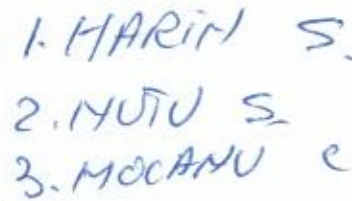 1. HARIN S.
2. NUTU S.
3. MOCANU C